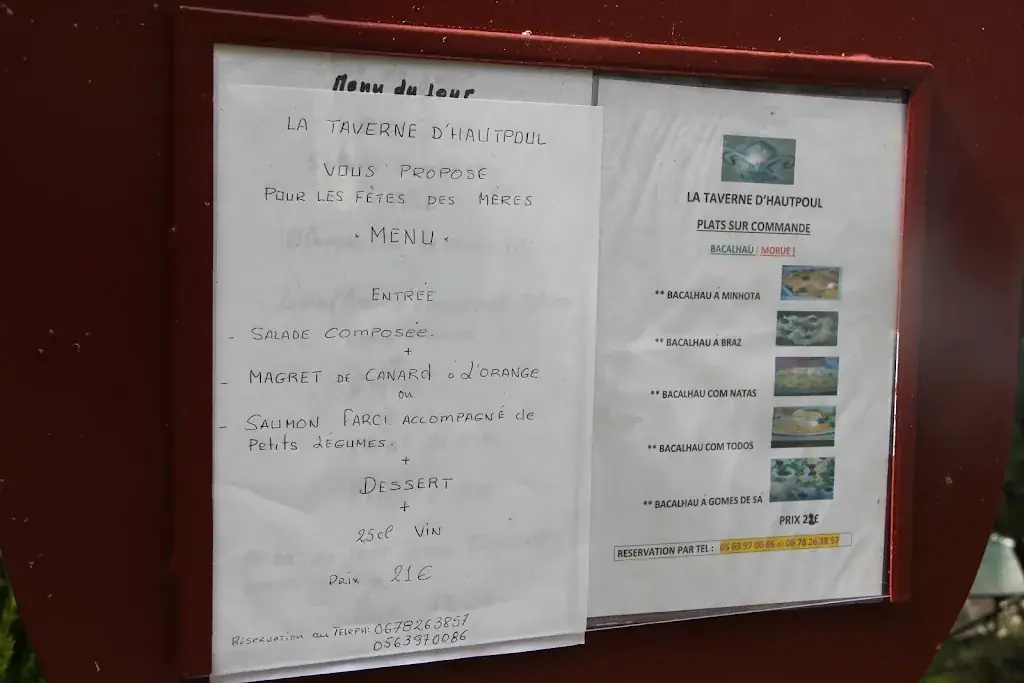 Menu du Jour
LA TAVERNE D'HAUTPOUL
VOUS PROPOSE
POUR LES FÊTES DES MÈRES
• MENU •
ENTRÉE
- SALADE COMPOSÉE.
+
- MAGRET DE CANARD à L'ORANGE
ou
- SAUMON FARCI ACCOMPAGNÉ de
Petits LÉGUMES.
+
DESSERT
+
25cl VIN
Prix 21€
RÉSERVATION au TELEPH: 0678263857
0563970086
LA TAVERNE D'HAUTPOUL
PLATS SUR COMMANDE
BACALHAU ( MORUE )
** BACALHAU À MINHOTA
** BACALHAU À BRAZ
** BACALHAU COM NATAS
** BACALHAU COM TODOS
** BACALHAU À GOMES DE SÁ
PRIX 22€
RESERVATION PAR TEL : 05 63 97 00 86 ou 06 78 26 38 57